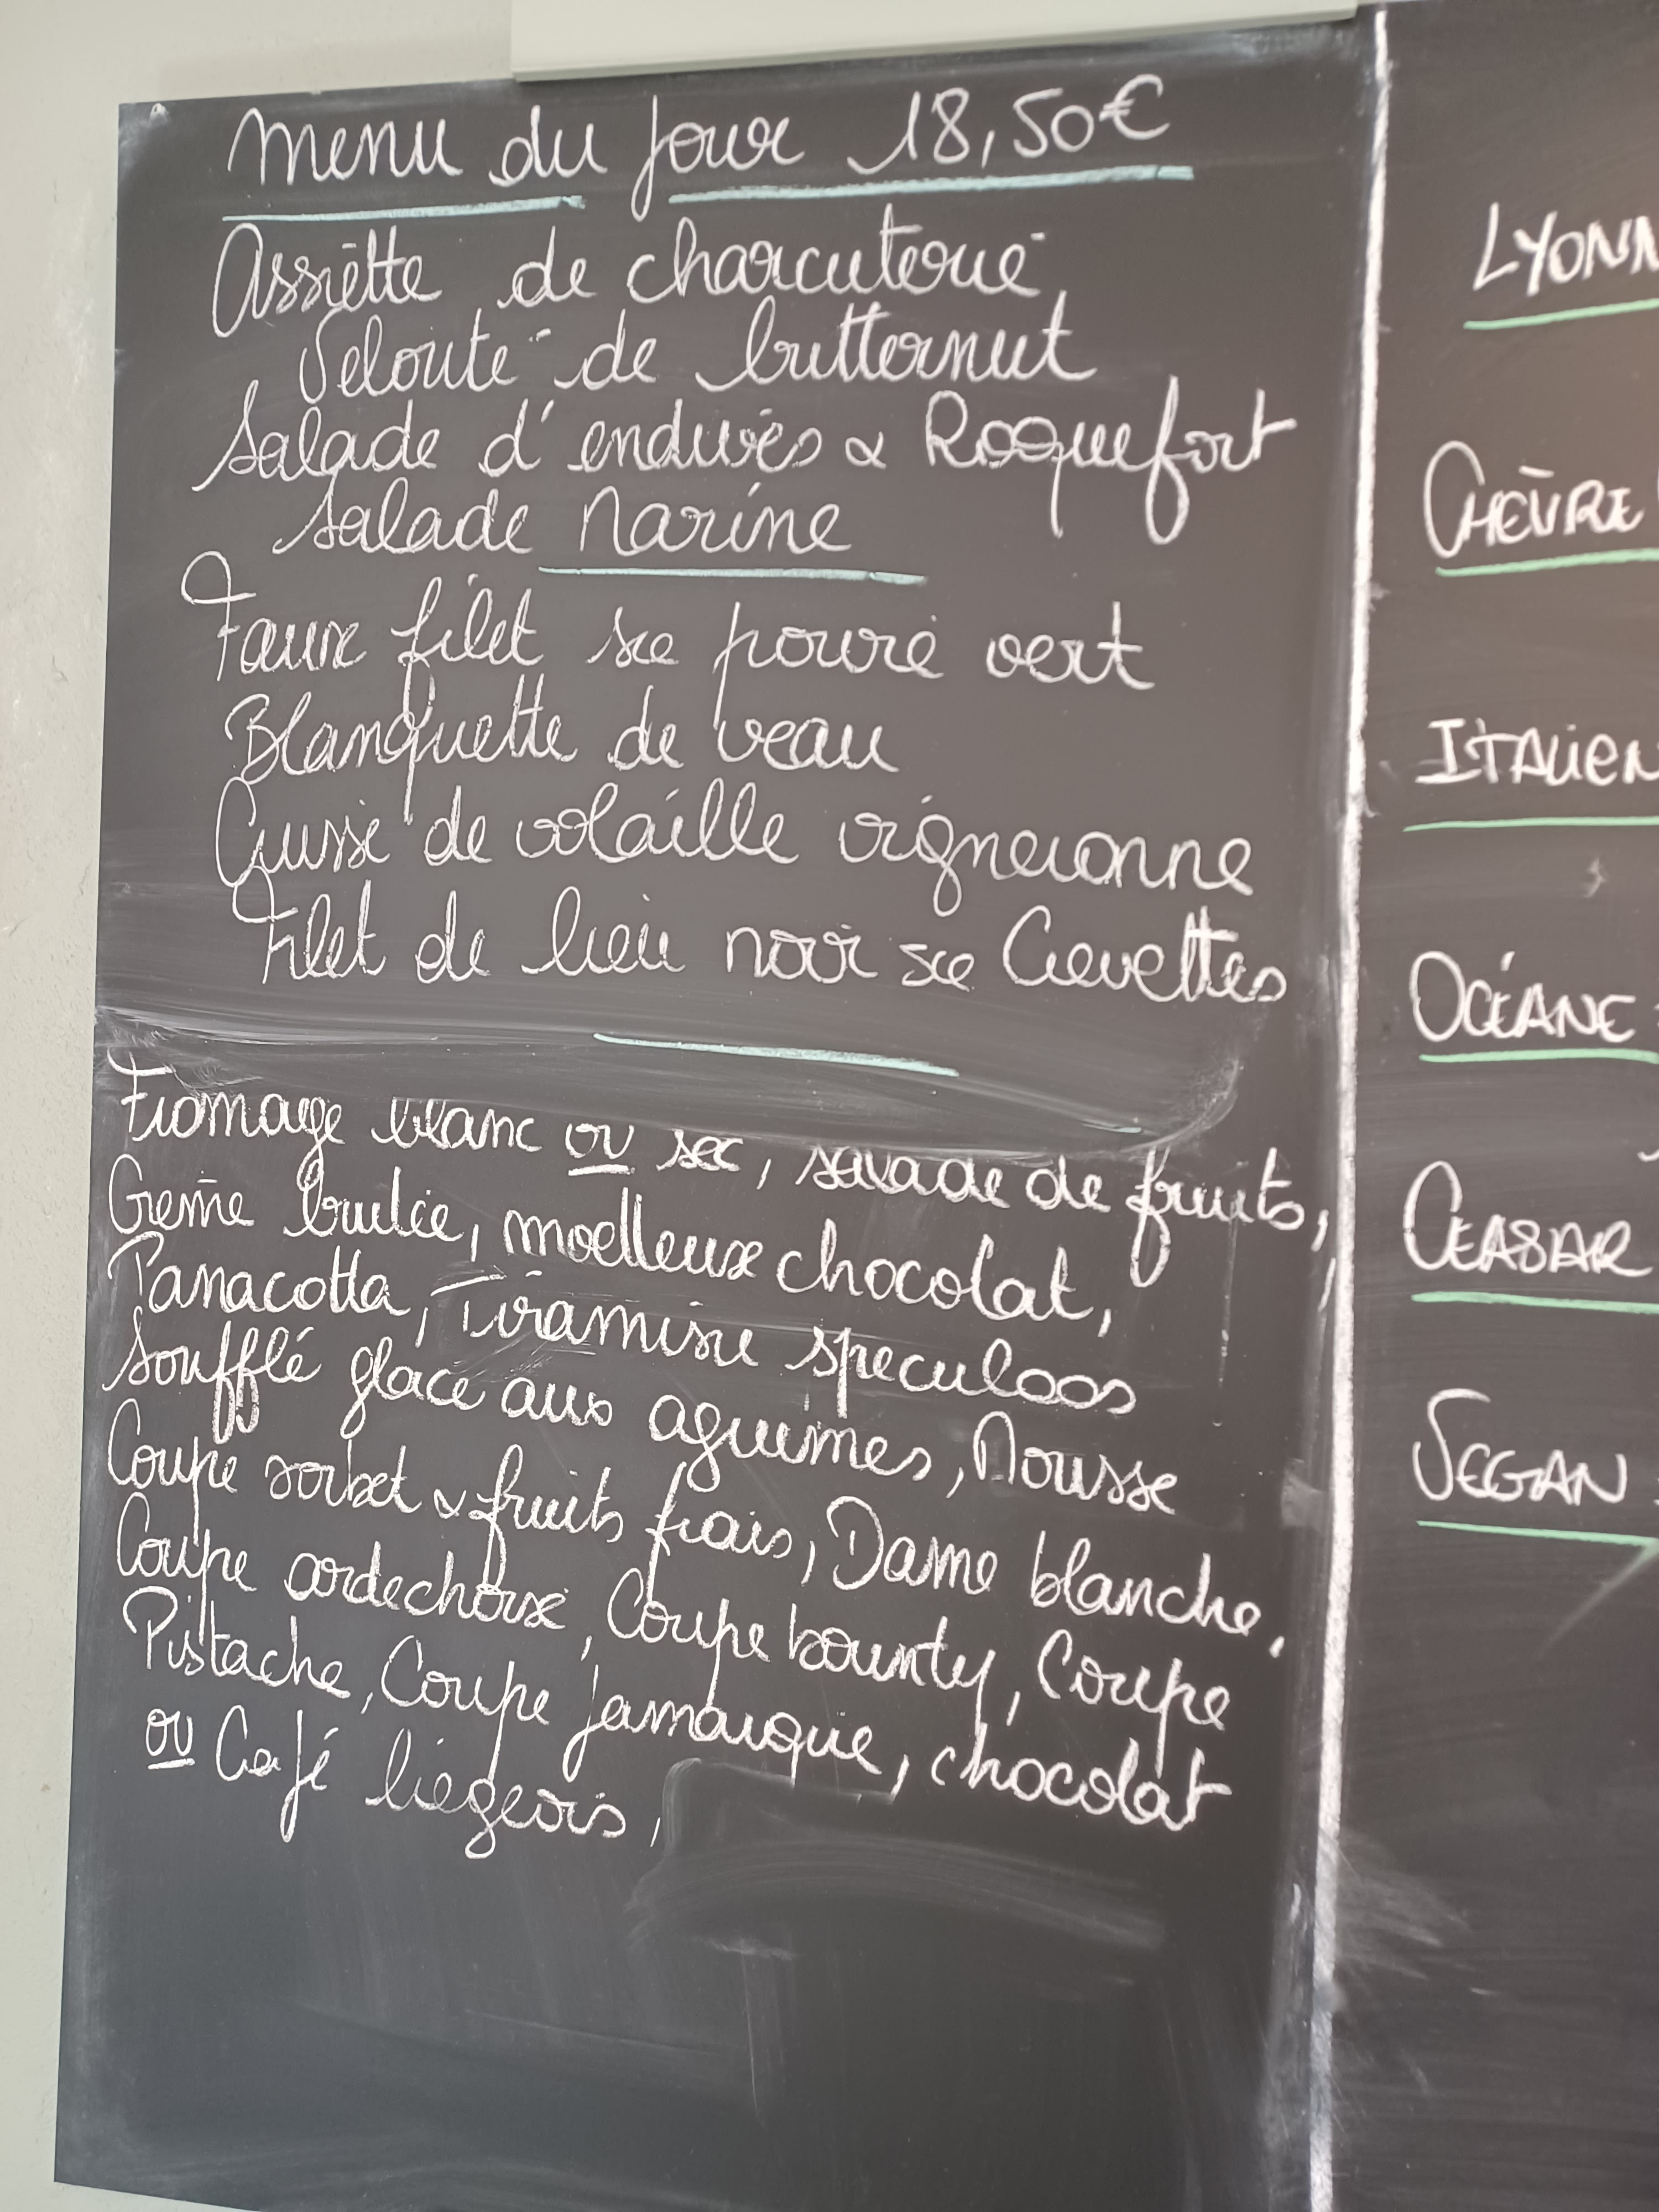 Menu du jour 18,50€
Assiette de charcuterie
Velouté de butternut
Salade d'endives & Roquefort
Salade Marine
Faux filet sce poivre vert
Blanquette de veau
Cuisse de volaille vigneronne
Filet de lieu noir sce Crevettes
Fromage blanc ou sec, salade de fruits,
Creme brulée, moelleux chocolat,
Panacotta, Tiramisu speculoos
Soufflé glace aux agrumes, Mousse
Coupe sorbet & fruits frais, Dame blanche,
Coupe ardechoise, Coupe bounty, Coupe
Pistache, Coupe jamaique, chocolat
ou Café liegeois,
LYONN
CHÈVRE
ITALIEN
OCÉANE
CEASAR
VEGAN